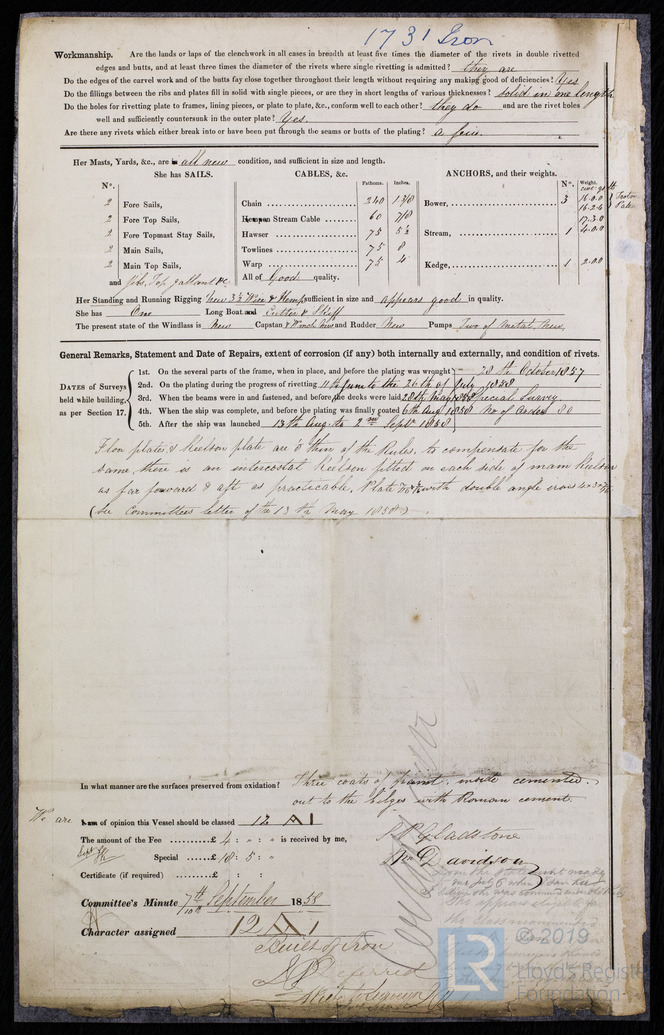 1731 Iron
Workmanship. Are the lands or laps of the clenchwork in all cases in breadth at least five times the diameter of the rivets in double rivetted
edges and butts, and at least three times the diameter of the rivets where single rivetting is admitted? they are
Do the edges of the carvel work and of the butts fay close together throughout their length without requiring any making good of deficiencies? Yes
Do the fillings between the ribs and plates fill in solid with single pieces, or are they in short lengths of various thicknesses? solid in one length
Do the holes for rivetting plate to frames, lining pieces, or plate to plate, &c., conform well to each other? they do and are the rivet holes
well and sufficiently countersunk in the outer plate? Yes.
Are there any rivets which either break into or have been put through the seams or butts of the plating? a few
Her Masts, Yards, &c., are in all new condition, and sufficient in size and length.
She has SAILS. CABLES, &c. ANCHORS, and their weights.
N°. Fathoms. Inches. N°. Weight.
2 Fore Sails, Chain 240 1 3/8 Bower, 3 16.0.0 Trotman
2 Fore Top Sails, Hempen Stream Cable 60 7/8 16.2.6 Patent
2 Fore Topmast Stay Sails, Hawser 75 5½ 17.3.0 Stream, 1 4.0.0
2 Main Sails, Towlines 75 8
2 Main Top Sails, Warp 75 4 Kedge, 1 2.0.0
and Jibs, Top gallant &c All of Good quality.
Her Standing and Running Rigging New 3½ Wire & Hemp sufficient in size and appears good in quality.
She has One Long Boat and Cutter & Skiff
The present state of the Windlass is New Capstan & Winch New and Rudder New Pumps Two of Metal, New,
General Remarks, Statement and Date of Repairs, extent of corrosion (if any) both internally and externally, and condition of rivets.
DATES of Surveys held while building, as per Section 17.
1st. On the several parts of the frame, when in place, and before the plating was wrought 28th October 1857
2nd. On the plating during the progress of rivetting 11th June to the 26th of July 1858
3rd. When the beams were in and fastened, and before the decks were laid 28th May 1858 Special Survey
4th. When the ship was complete, and before the plating was finally coated 6th Aug 1858 No of Order 80
5th. After the ship was launched 13th Aug. to 2nd Septr 1858
Floor plates & Keelson plate are thin of the Rules. to compensate for the
same there is an intercostal Keelson fitted on each side of main Keelson
as far forward & aft as practicable, Plate with double angle irons 4 x 3 x
(See Committees letter of the 13th May 1858)
In what manner are the surfaces preserved from oxidation? Three coats of paint. inside cemented
out to the bilges with Roman cement.
We are I am of opinion this Vessel should be classed 12 A 1
The amount of the Fee £ 4 : " : " is received by me,
Special £ 18 : 5 : "
Certificate (if required) £ : :
J. P. Gladstone
Wm Davidson
Committee's Minute 7th September 1858
10th
Character assigned 12 A 1
Built of Iron
Deferred
© 2019
LR
Lloyd's Register
Foundation